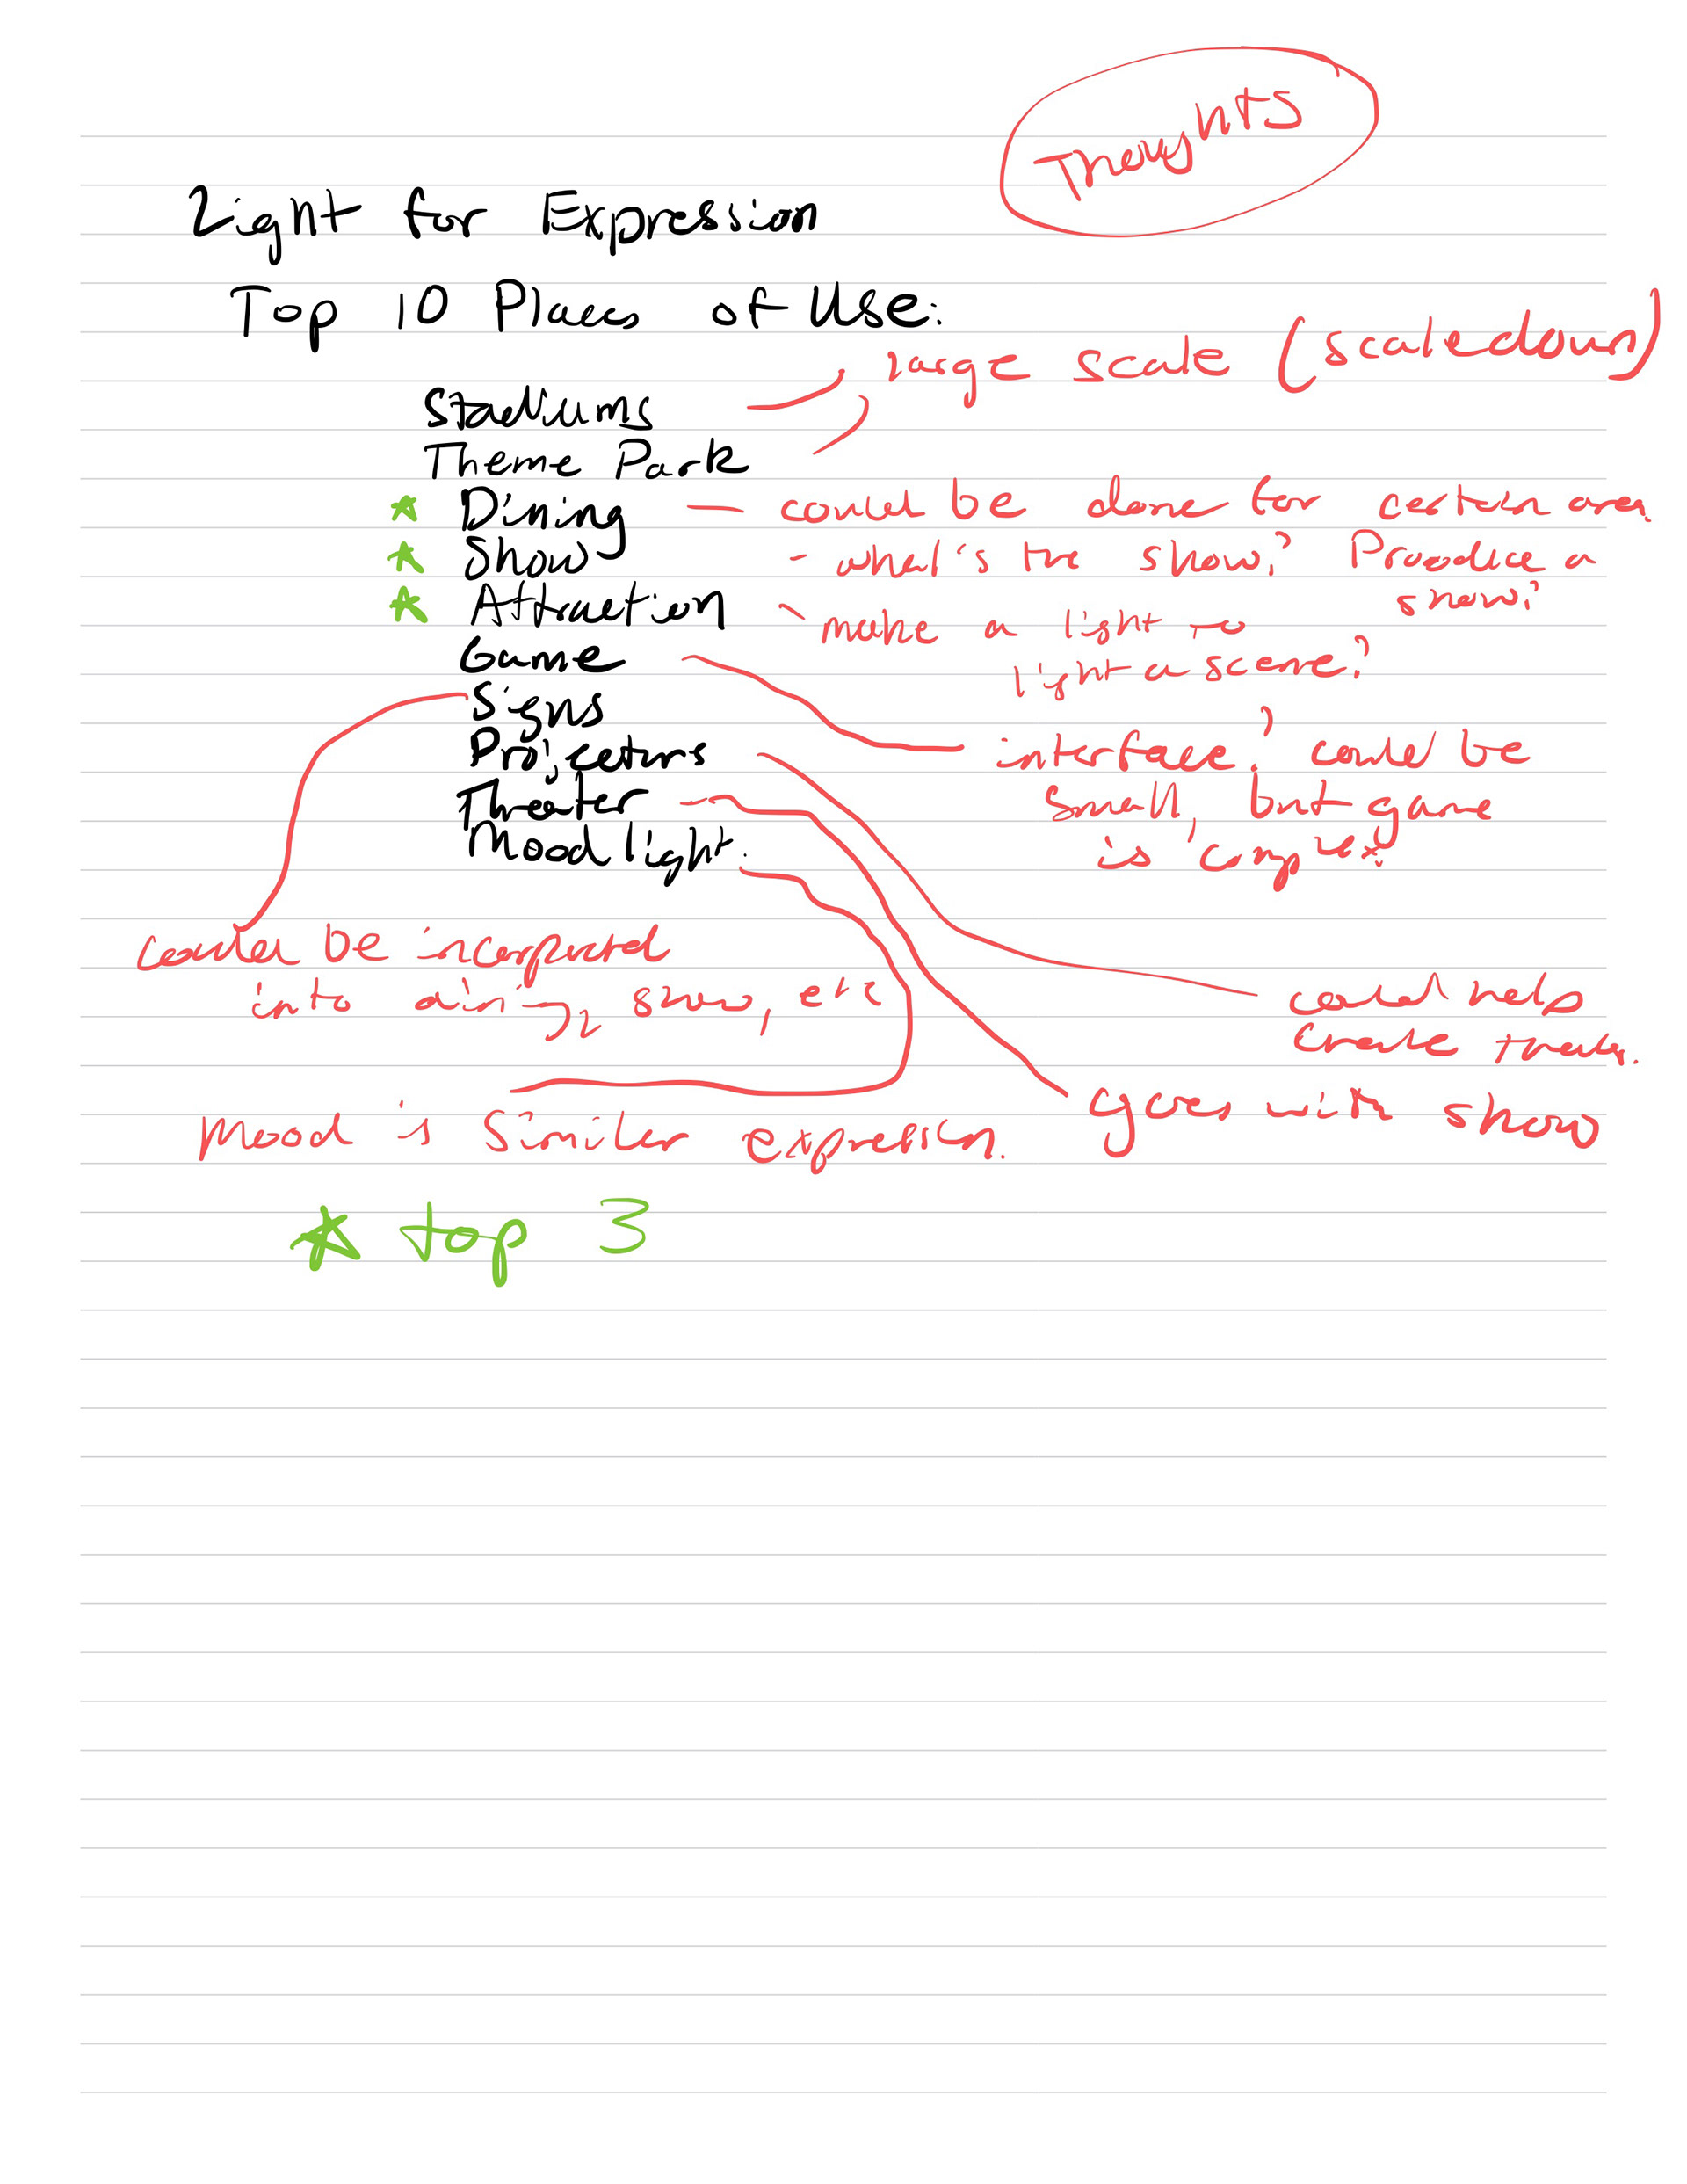 Thoughts
Light for Expression
Top 10 Places of Use:
large scale (scaledown)
Stadiums
Theme Park
Dining - could be done for certern area
Show - what's the show? Produce a
show?
Attraction - make a light to
light a scene?
Game
Signs
Projectors interface? could be
Theater small, but game
Moodlight. is complex
could be incorporated
into dining, show, etc
could help
create theater.
goes with show
Mood is similer expression.
* top 3